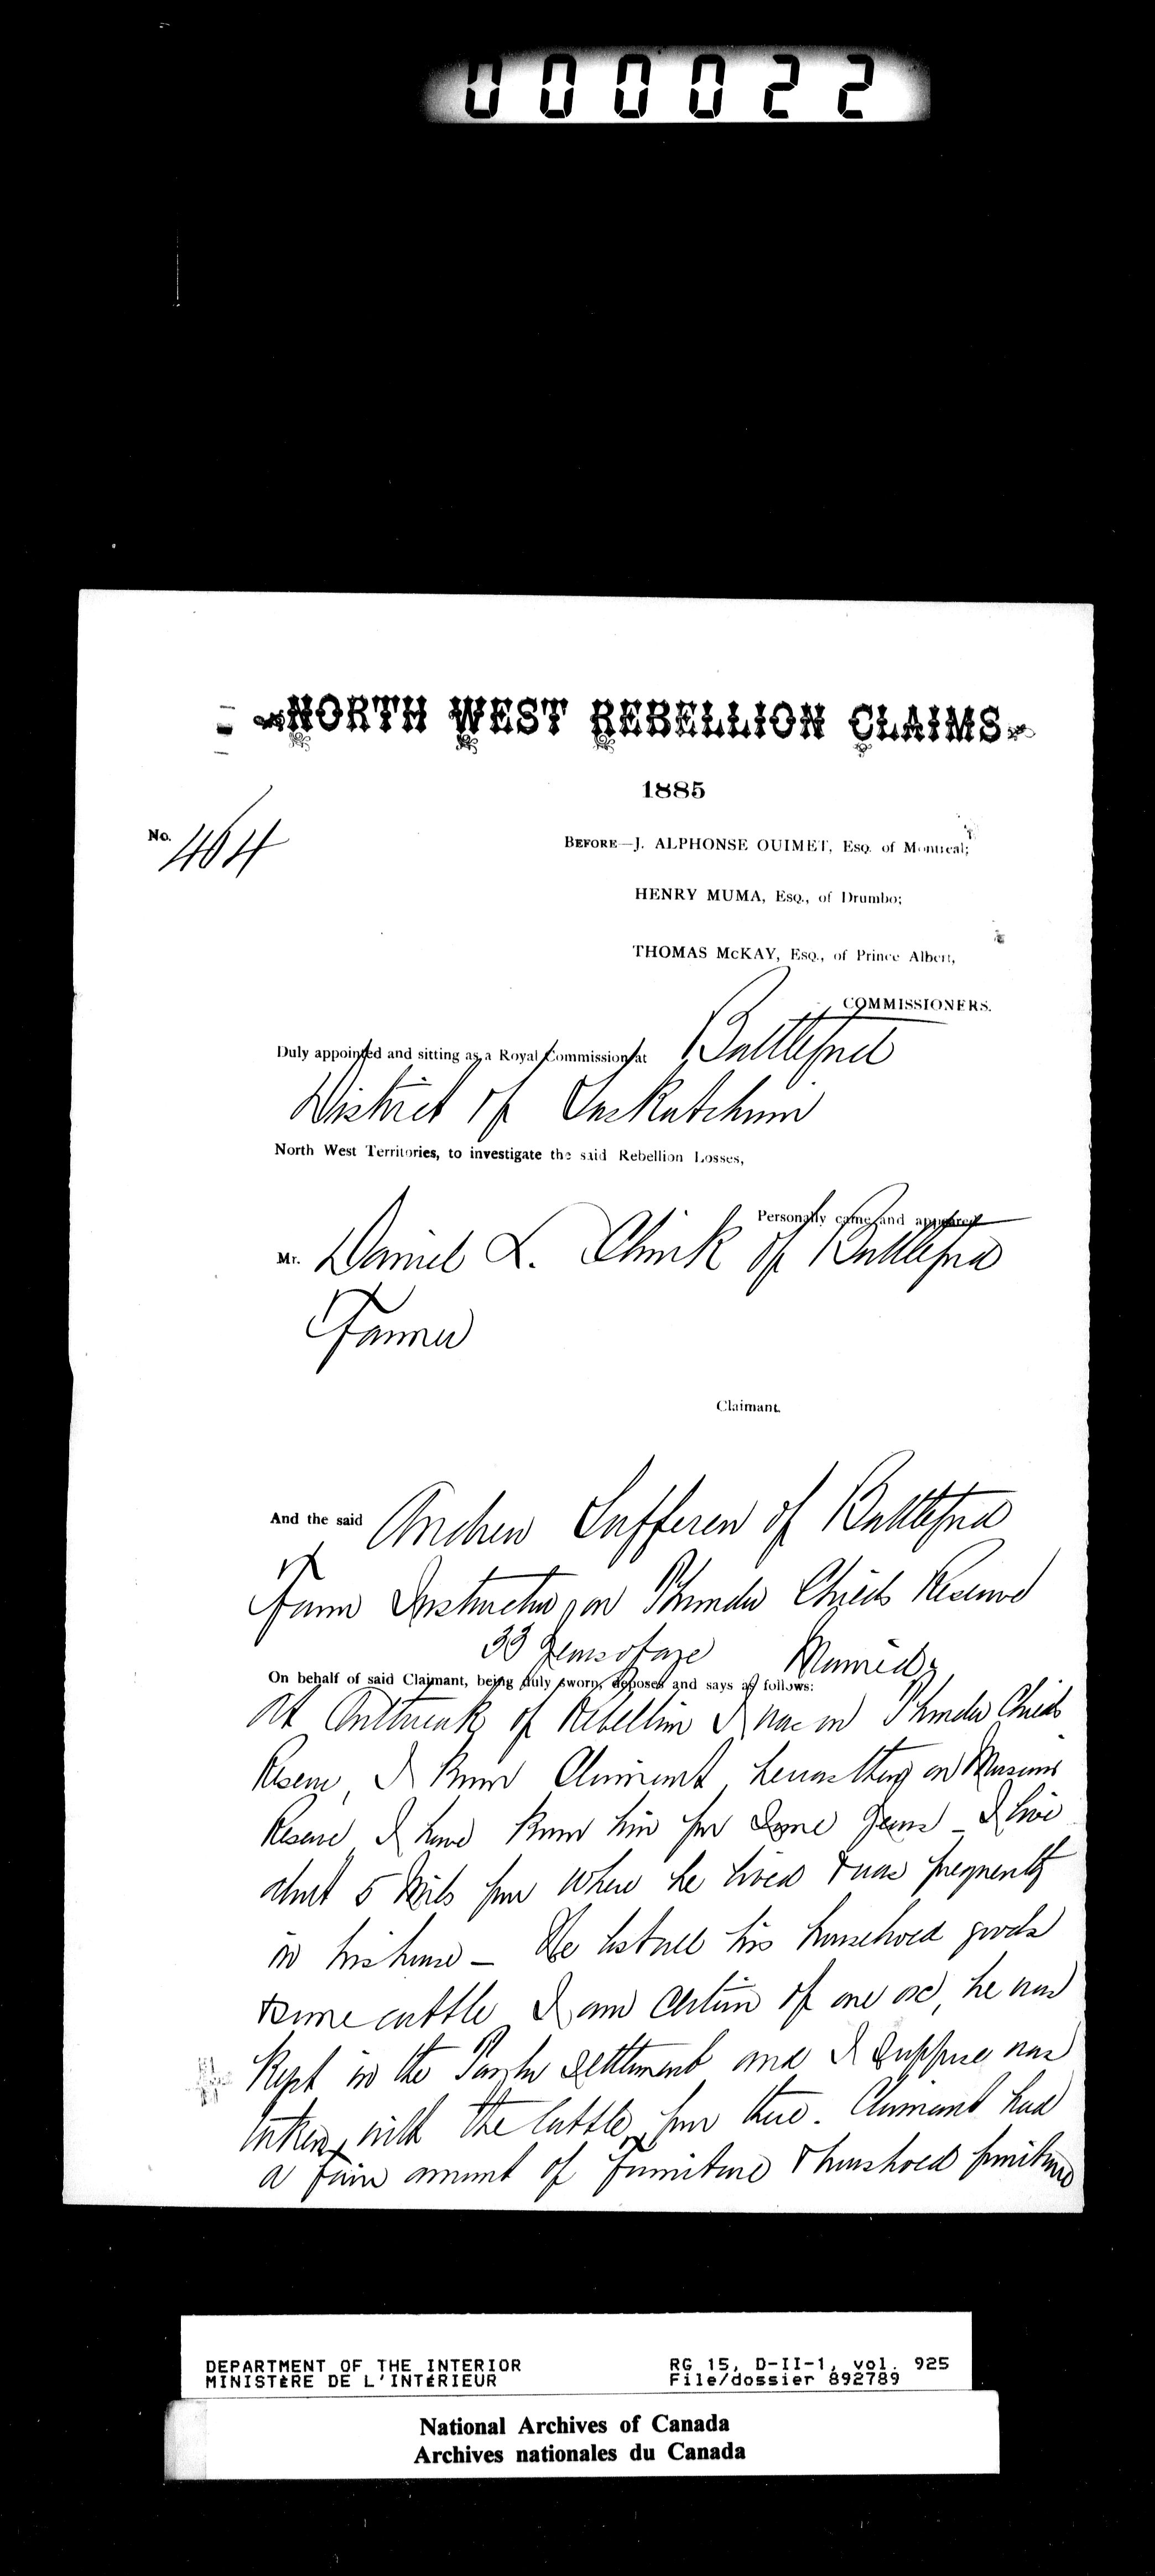 000022
NORTH WEST REBELLION CLAIMS
1885
No. 464
BEFORE—J. ALPHONSE OUIMET, Esq. of Montreal;
HENRY MUMA, Esq., of Drumbo;
THOMAS McKAY, Esq., of Prince Albert,
COMMISSIONERS.
Duly appointed and sitting as a Royal Commission at Battleford
District of Saskatchewan
North West Territories, to investigate the said Rebellion Losses,
Personally came and appeared
Mr. Daniel L. Clink of Battleford
Farmer
Claimant.
And the said Andrew Sufferen of Battleford
Farm Instructor on Thunder Childs Reserve
33 years of age Married
On behalf of said Claimant, being duly sworn, deposes and says as follows:
At Outbreak of Rebellion I was on Thunder Childs
Reserve, I know Claimant, he was then on
Reserve I have known him for some years – I live
about 5 Miles from where he lived & was frequently
in his house – He lost all his household goods
& some cattle I am certain of one ox, he was
kept in the settlement and I suppose was
taken with the cattle from there. Claimant had
a fair amount of furniture & household furniture
DEPARTMENT OF THE INTERIOR
MINISTÈRE DE L'INTÉRIEUR
RG 15, D-II-1, vol. 925
File/dossier 892789
National Archives of Canada
Archives nationales du Canada